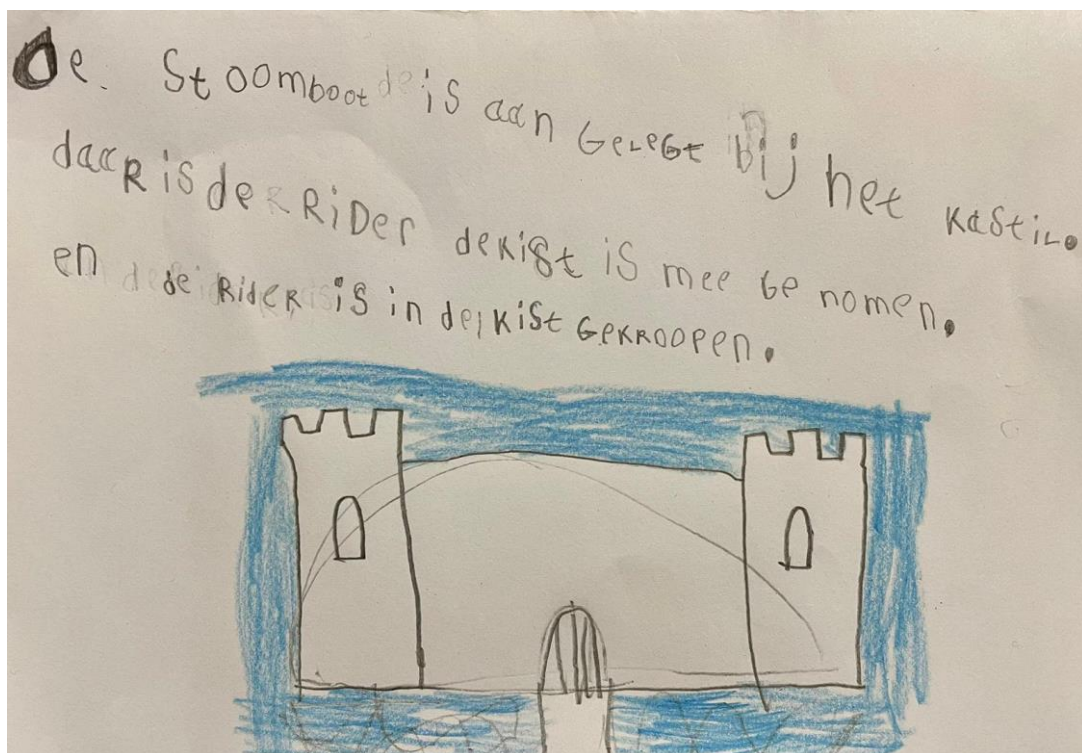 De. Stoomboot is aan GeLeGt bij het KaStiL.
daaR is de RiDer deKiSt iS mee Ge nomen.
en de RideR iS in de, KiSt GeKROOPen.